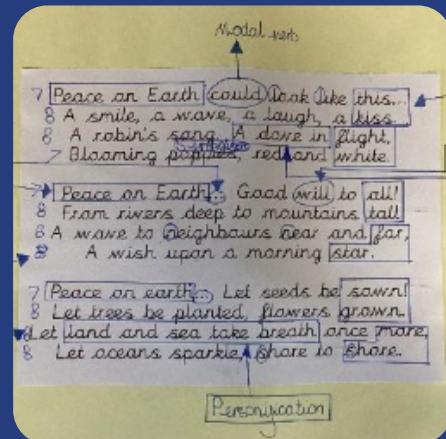 Modal verb
7 Peace on Earth could look like this...
8 A smile, a wave, a laugh, a kiss.
8 A robin's song, A dove in flight,
7 Blooming poppies, red and white.
Peace on Earth... Good will to all!
8 From rivers deep to mountains tall
8 A wave to neighbours near and far,
8 A wish upon a morning star.
7 Peace on earth... Let seeds be sown!
8 Let trees be planted, flowers grown.
8 Let land and sea take breath once more,
8 Let oceans sparkle, shore to shore.
Personification